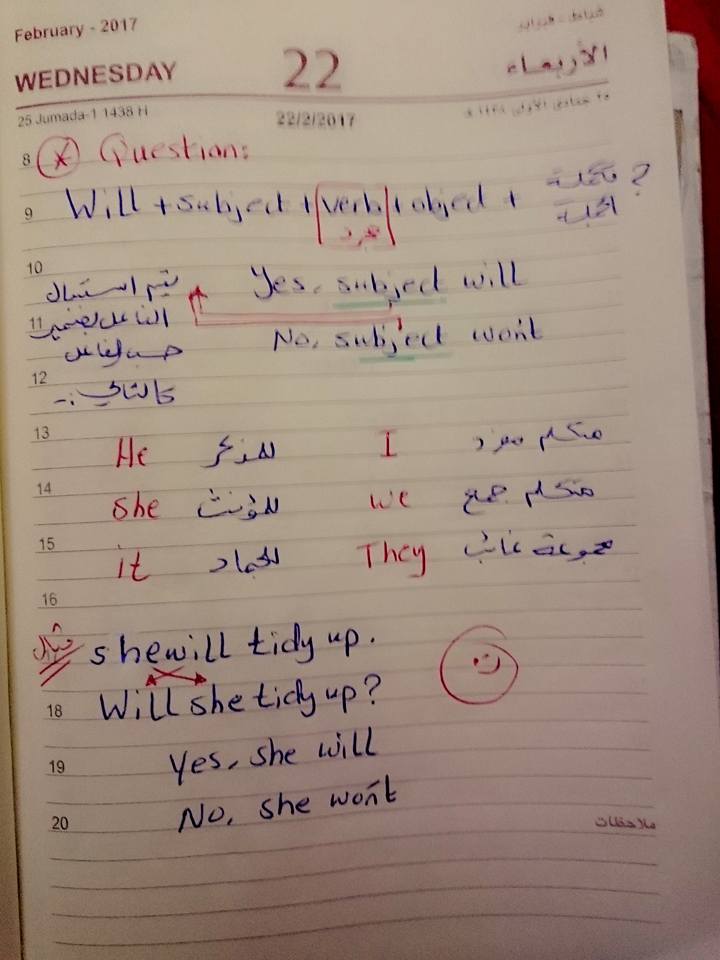 February - 2017
شباط - فبراير
WEDNESDAY 22 الأربعاء
25 Jumada-1 1438 H 22/2/2017 ٢٥ جمادى الأولى ١٤٣٨ هـ
8 * Question:
9 Will + subject + verb + object + تكملة الجملة ?
مجرد
10 يتم استبدال Yes, subject will
11 الفاعل بضمير
No, subject won't
حسب الفاعل
12 كالتالي :-
13 He للمذكر I متكلم مفرد
14 she للمؤنث we متكلم جمع
15 it للجماد They مجموعة غائب
16
مثال she will tidy up.
ن
18 Will she tidy up?
19 Yes, she will
20 No, she won't
ملاحظات